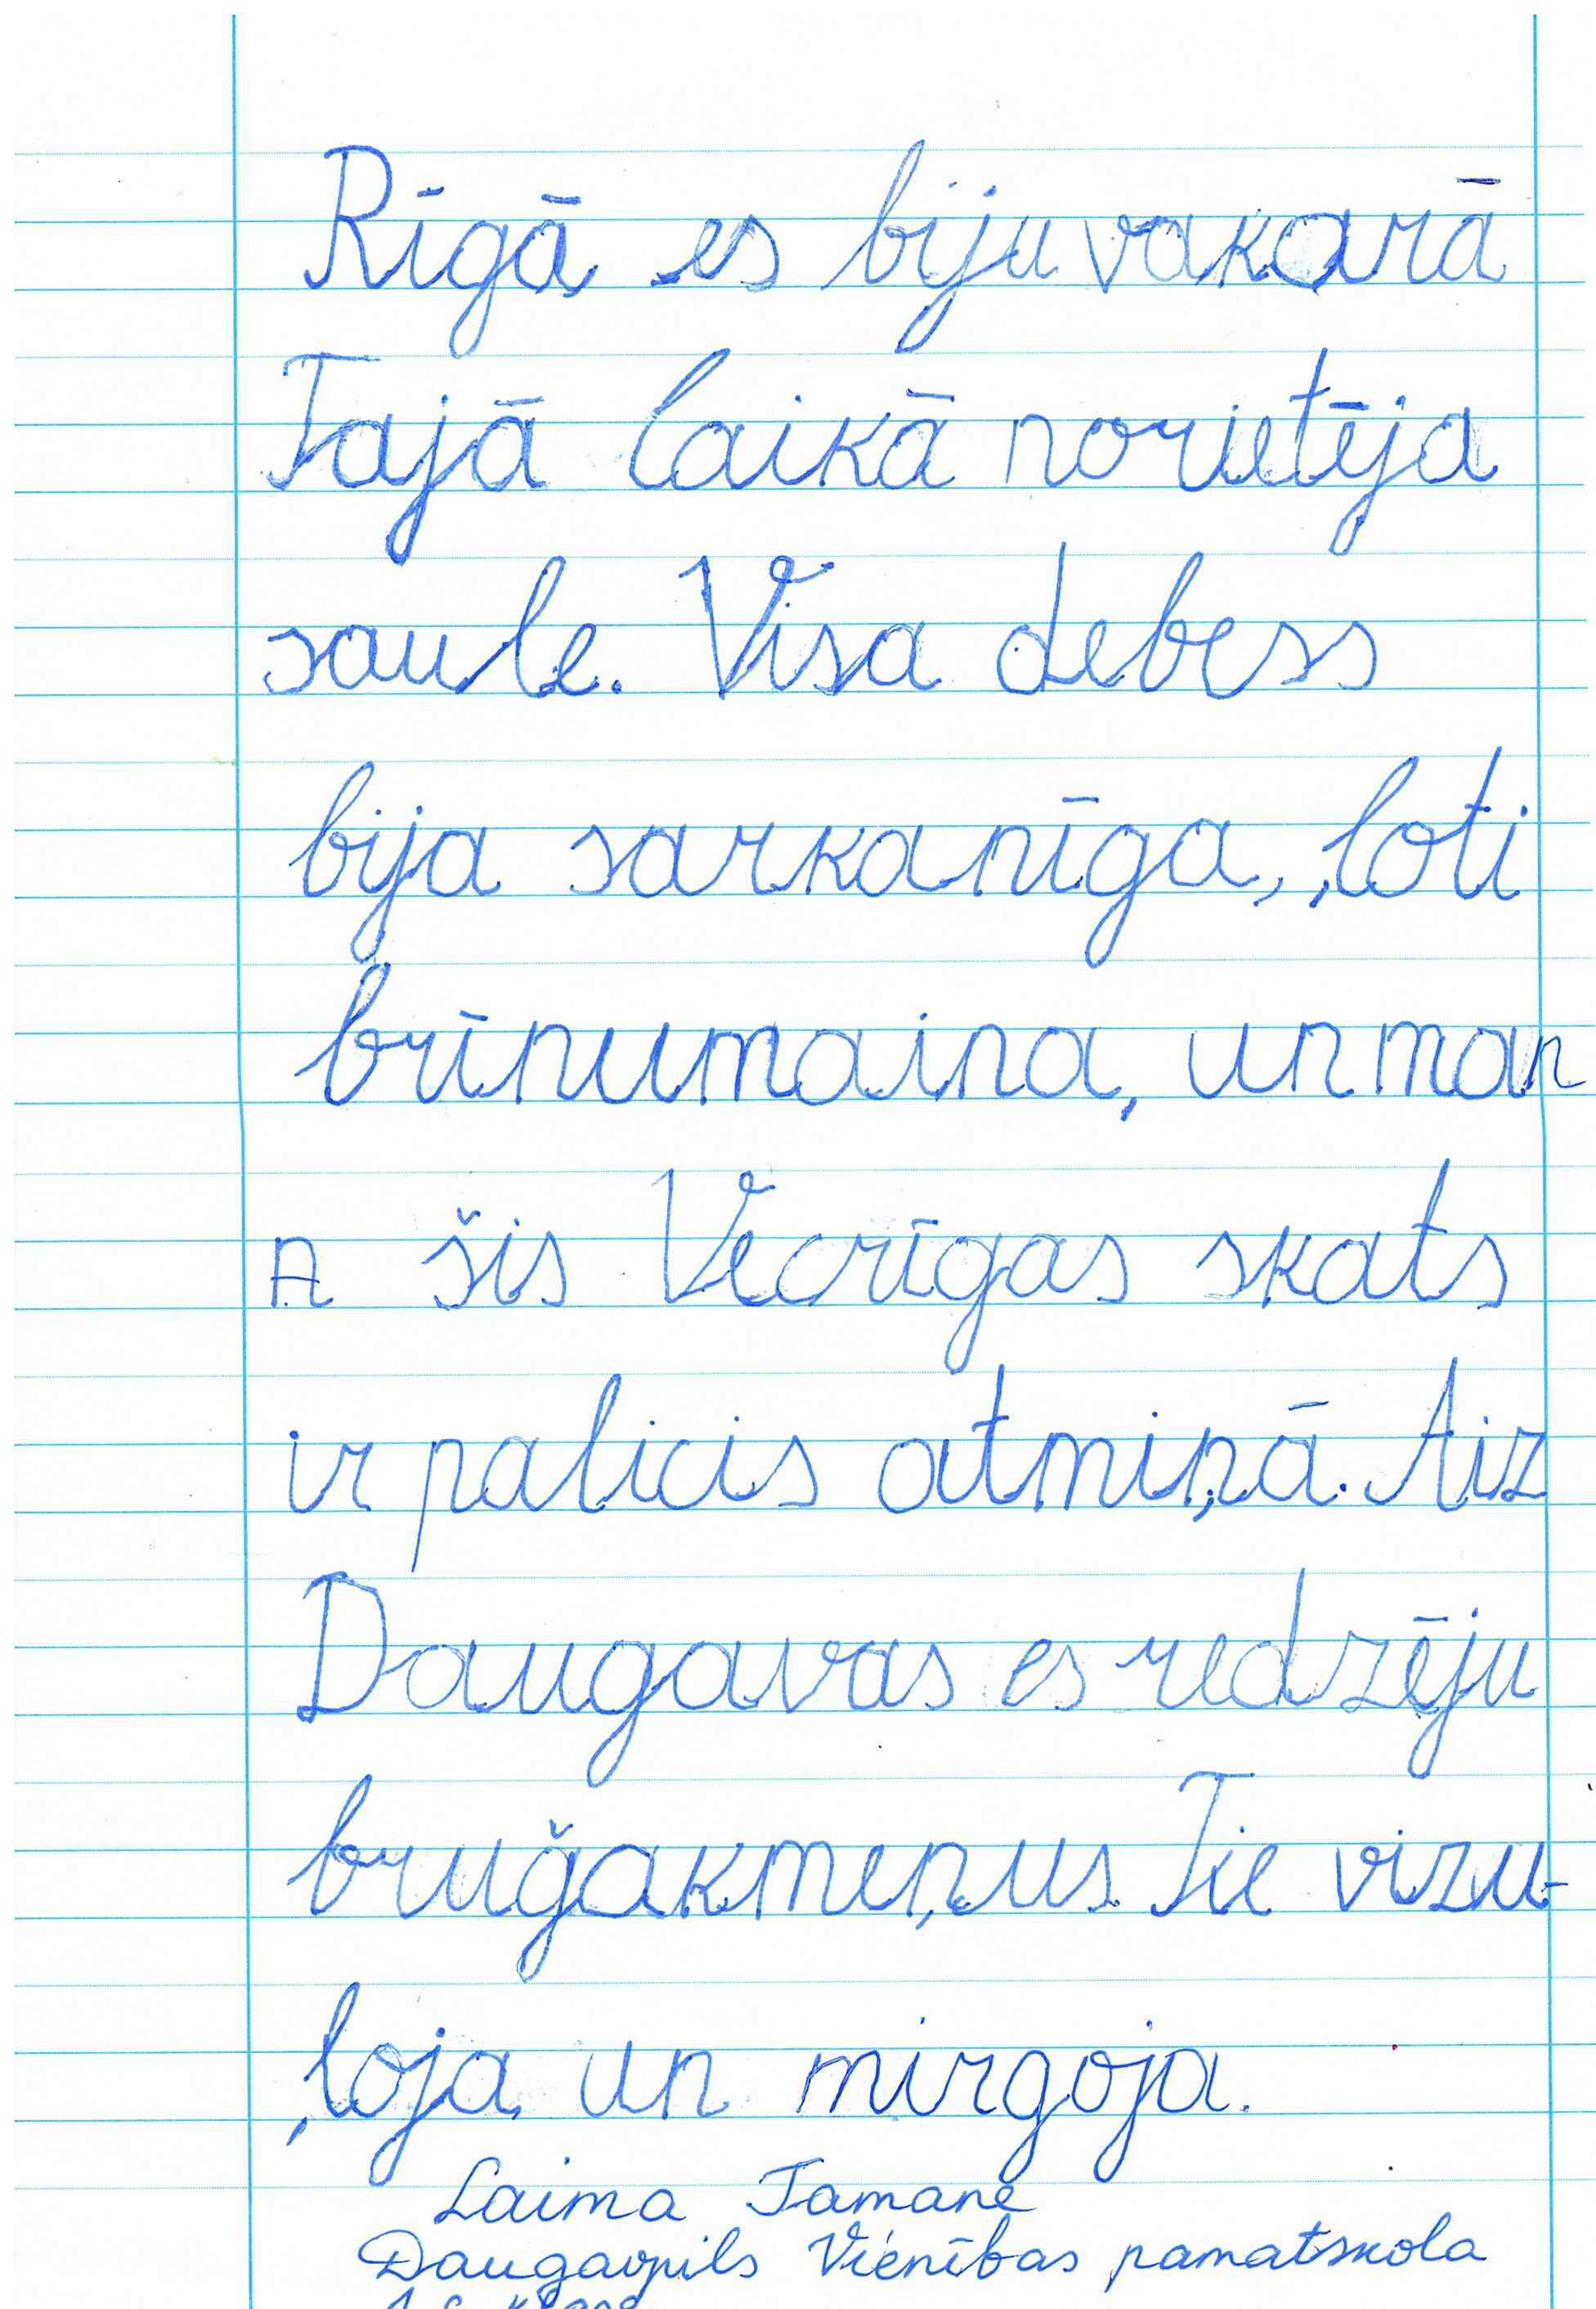 Rīgā es biju vakarā
Tajā laikā norietēja
saule. Visa debess
bija sarkanīga, ļoti
brīnumaina, un man
A šis Vecrīgas skats
ir palicis atmiņā. Aiz
Daugavas es redzēju
bruģakmeņus. Tie vizu-
ļoja un mirgoja.
Laima Tamane
Daugavpils Vienības pamatskola